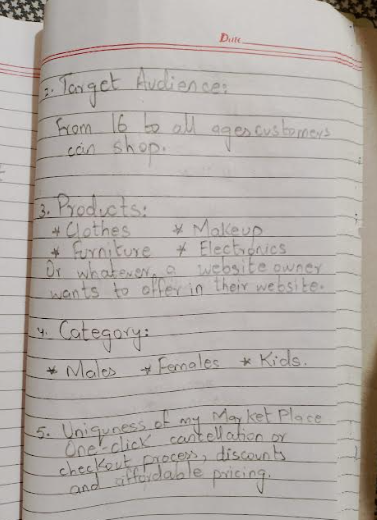 Date
2. Target Audience:
From 16 to all ages customers
can shop.
3. Products:
* Clothes * Makeup
* Furniture * Electronics
Or whatever, a website owner
wants to offer in their website.
4. Category:
* Males * Females * Kids.
5. Uniquness of my Market Place
One-click cantellation or
checkout process, discounts
and affordable pricing.